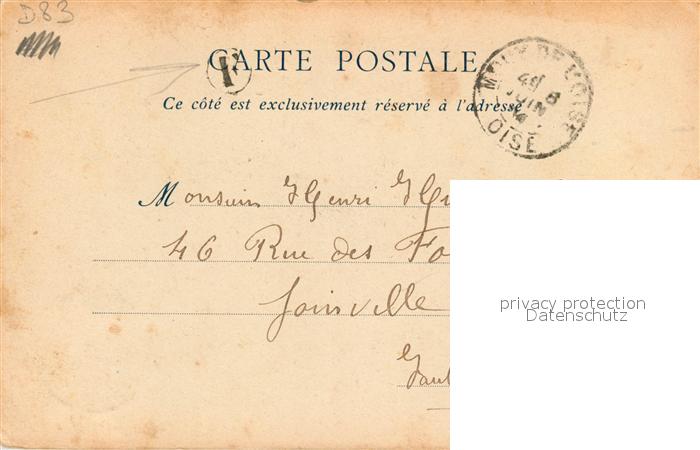 D83
CARTE POSTALE
T
Ce côté est exclusivement réservé à l'adresse
MOUY DE L'OISE
JUIN
OISE
Monsieur Henri
46 Rue des
Joinville
privacy protection
Datenschutz